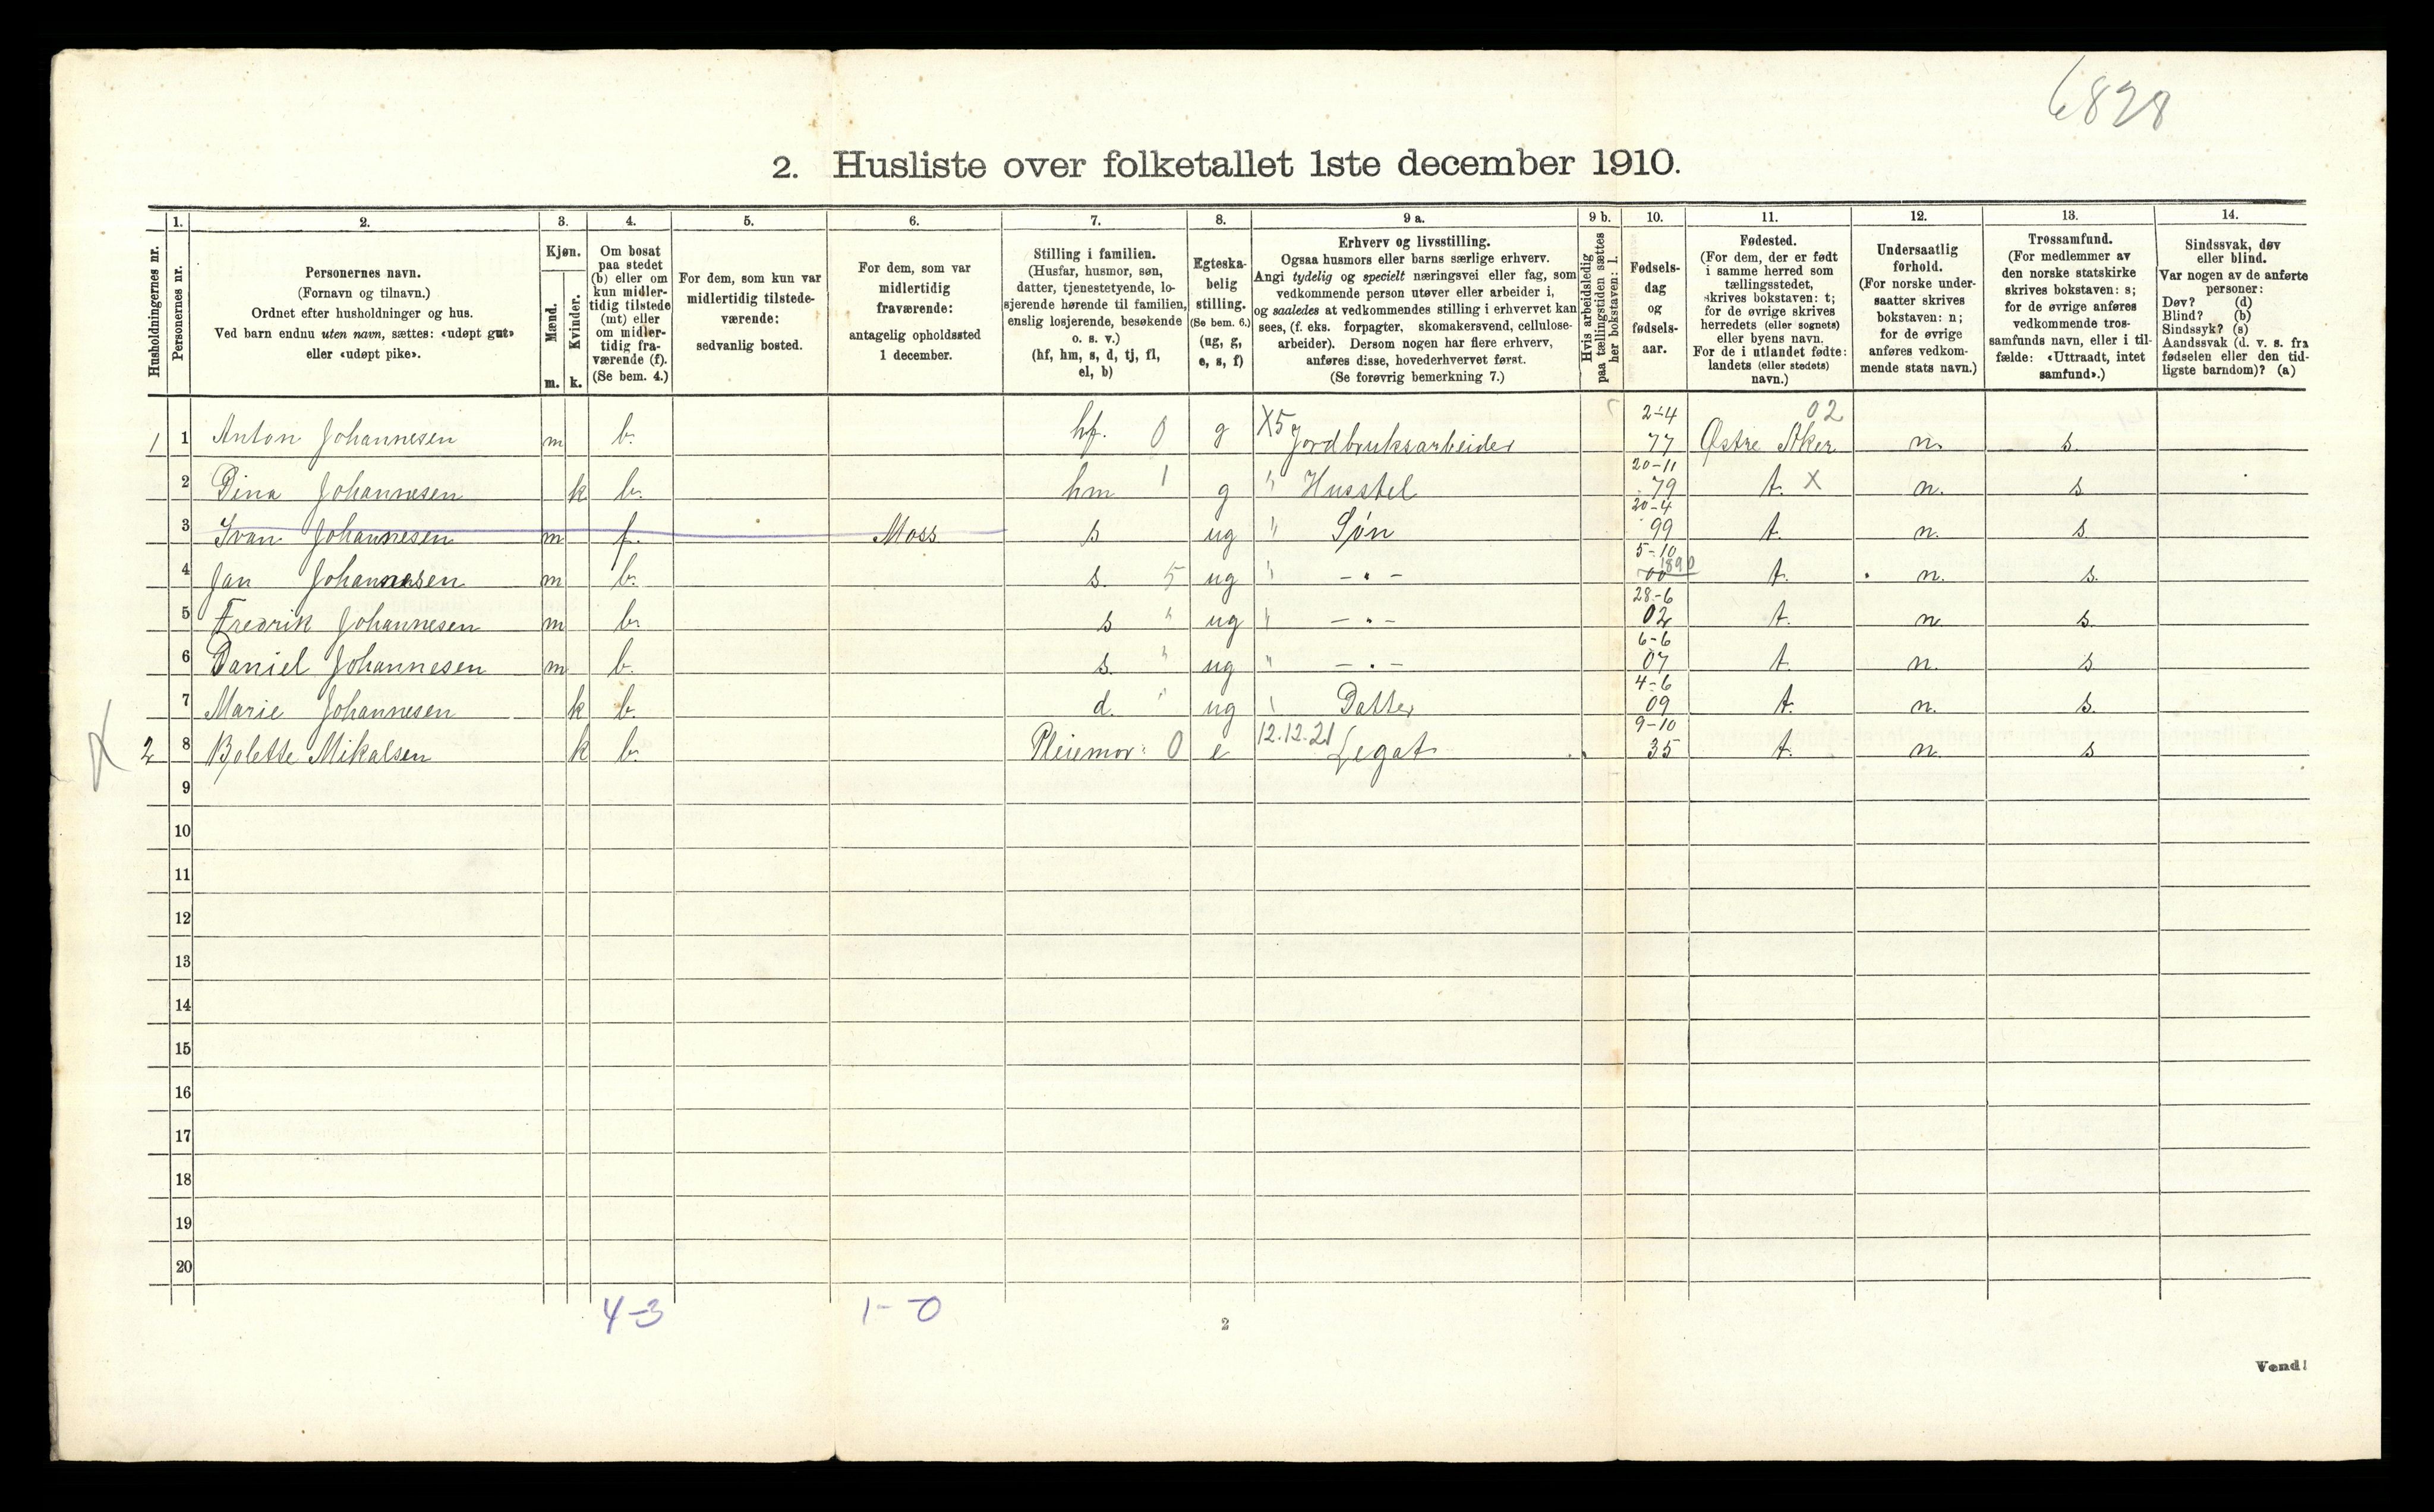 6828
2. Husliste over folketallet 1ste december 1910.
Husholdningernes nr.
1.
Personernes nr.
2.
Personernes navn.
(Fornavn og tilnavn.)
Ordnet efter husholdninger og hus.
Ved barn endnu uten navn, sættes: «udøpt gut»
eller «udøpt pike».
3.
Kjøn.
Mænd.
Kvinder.
m. k.
4.
Om bosat
paa stedet
(b) eller om
kun midler-
tidig tilstede
(mt) eller
om midler-
tidig fra-
værende (f).
(Se bem. 4.)
5.
For dem, som kun var
midlertidig tilstede-
værende:
sedvanlig bosted.
6.
For dem, som var
midlertidig
fraværende:
antagelig opholdssted
1 december.
7.
Stilling i familien.
(Husfar, husmor, søn,
datter, tjenestetyende, lo-
sjerende hørende til familien,
enslig losjerende, besøkende
o. s. v.)
(hf, hm, s, d, tj, fl,
el, b)
8.
Egteska-
belig
stilling.
(Se bem. 6.)
(ug, g,
e, s, f)
9 a.
Erhverv og livsstilling.
Ogsaa husmors eller barns særlige erhverv.
Angi tydelig og specielt næringsvei eller fag, som
vedkommende person utøver eller arbeider i,
og saaledes at vedkommendes stilling i erhvervet kan
sees, (f. eks. forpagter, skomakersvend, cellulose-
arbeider). Dersom nogen har flere erhverv,
anføres disse, hovederhvervet først.
(Se forøvrig bemerkning 7.)
9 b.
Hvis arbeidsledig
paa tællingstiden sættes
her bokstaven: l.
10.
Fødsels-
dag
og
fødsels-
aar.
11.
Fødested.
(For dem, der er født
i samme herred som
tællingsstedet,
skrives bokstaven: t;
for de øvrige skrives
herredets (eller sognets)
eller byens navn.
For de i utlandet fødte:
landets (eller stedets)
navn.)
12.
Undersaatlig
forhold.
(For norske under-
saatter skrives
bokstaven: n;
for de øvrige
anføres vedkom-
mende stats navn.)
13.
Trossamfund.
(For medlemmer av
den norske statskirke
skrives bokstaven: s;
for de øvrige anføres
vedkommende tros-
samfunds navn, eller i til-
fælde: «Uttraadt, intet
samfund».)
14.
Sindssvak, døv
eller blind.
Var nogen av de anførte
personer:
Døv? (d)
Blind? (b)
Sindssyk? (s)
Aandssvak (d. v. s. fra
fødselen eller den tid-
ligste barndom)? (a)
1 1 Anton Johannesen m b. hf. 0 g X5 Jordbruksarbeider 2-4 77 02 Østre Aker n. s.
2 Dina Johannesen k b. hm 1 g " Husstel 20-11 79 t. X n. s
3 Ivan Johannesen m f. Moss s ug " Søn 20-4 99 t. n. s.
4 Jan Johannesen m b. s. 5 ug " - " - 5-10 00 1890 t. n. s.
5 Fredrik Johannesen m b. s " ug " - " - 28-6 02 t. n. s.
6 Daniel Johannesen m b. s. " ug " - " - 6-6 07 t. n. s
7 Marie Johannesen k b. d. " ug " Datter 4-6 09 t. n. s.
2 8 Bolette Mikalsen k b. Pleiemor: 0 e 12.12.21 Legat 9-10 35 t. n. s
9
10
11
12
13
14
15
16
17
18
19
20
4-3 1-0
2
Vend!